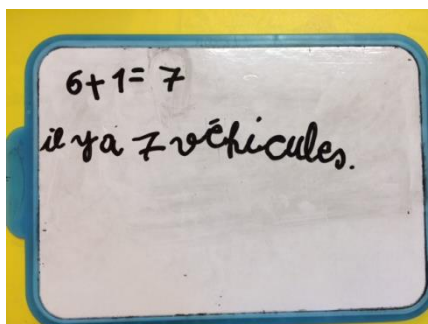 6+1=7
il y a 7 véhicules.